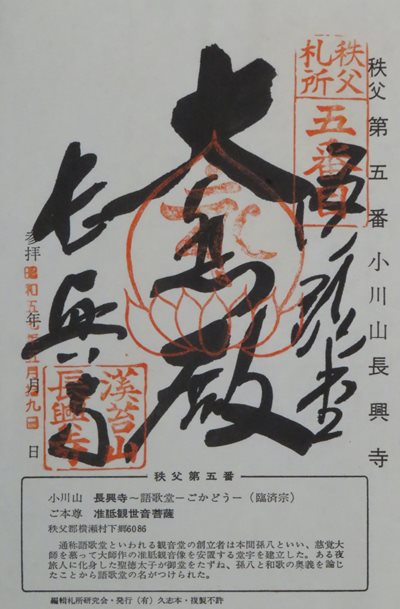 秩父第五番 小川山長興寺
秩父
札所
五番
語歌堂
大悲殿
長興寺
参拝 昭和五 年 月 日
長興寺
秩父第五番
小川山 長興寺～語歌堂ーごかどうー（臨済宗）
ご本尊 准胝観世音菩薩
秩父郡横瀬村下郷6086
通称語歌堂といわれる観音堂の創立者は本間孫八といい、慈覚大
師を慕って大師作の准胝観音像を安置する堂宇を建立した。ある夜
旅人に化身した聖徳太子が御堂をたずね、孫八と和歌の奥義を論じ
たことから語歌堂の名がつけられた。
編輯札所研究会・発行（有）久志本・複製不許